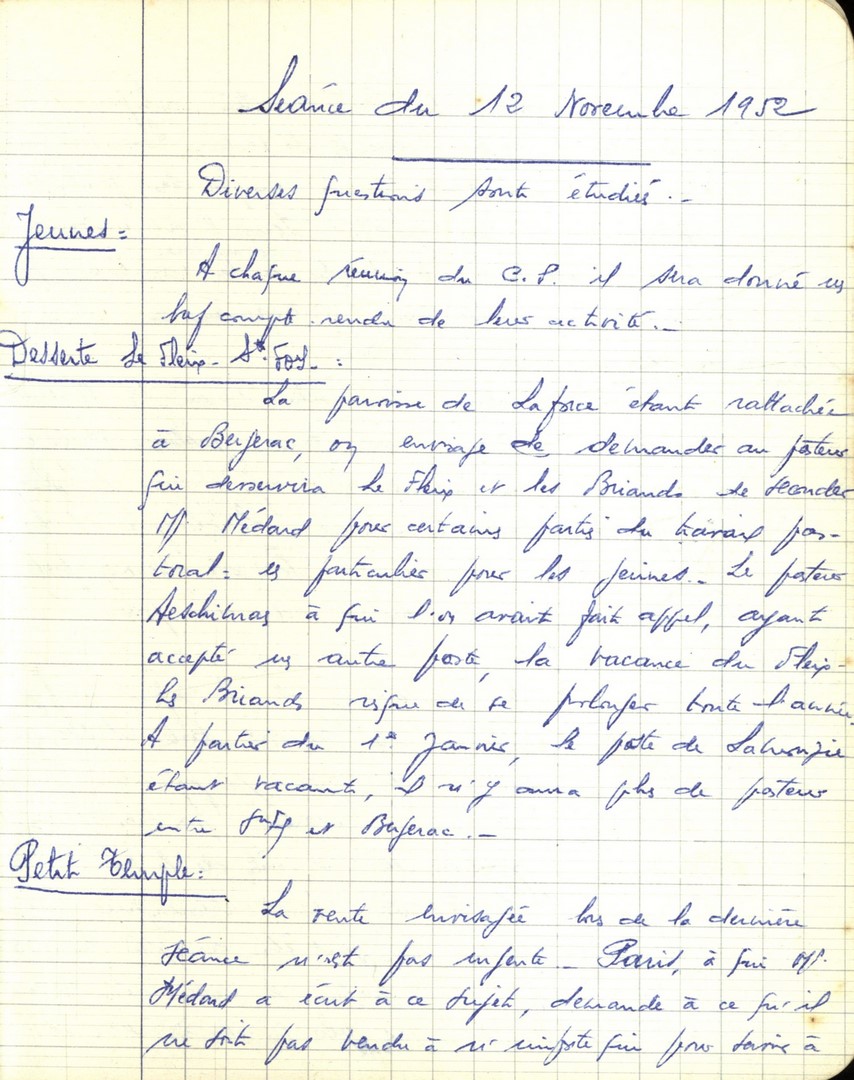 Séance du 12 Novembre 1952
Diverses questions sont étudiés.-
Jeunes=
A chaque réunion du C.P. il sera donné un
bref compte-rendu de leur activité.-
Desserte Le Fleix-Ste Foy-:
La paroisse de Laforce étant rattachée
à Bergerac, on envisage de demander au pasteur
qui desservira Le Fleix et les Briands de seconder
Mr Médard pour certains partis du travail pas-
toral= en particulier pour les jeunes.- Le pasteur
Aeschimas à qui l'on avait fait appel, ayant
accepté un autre poste, la vacance du Fleix-
Les Briands risque de se prolonger toute l'année.
A partir du 1er Janvier, le poste de Lamonzie
étant vacant, il n'y aura plus de pasteur
entre Ste Foy et Bergerac.-
Petit Temple:
La vente envisagée lors de la dernière
séance n'est pas urgente.- Paris, à qui Mr.
Médard a écrit à ce sujet, demande à ce qu'il
ne soit pas vendu à n'importe qui pour servir à